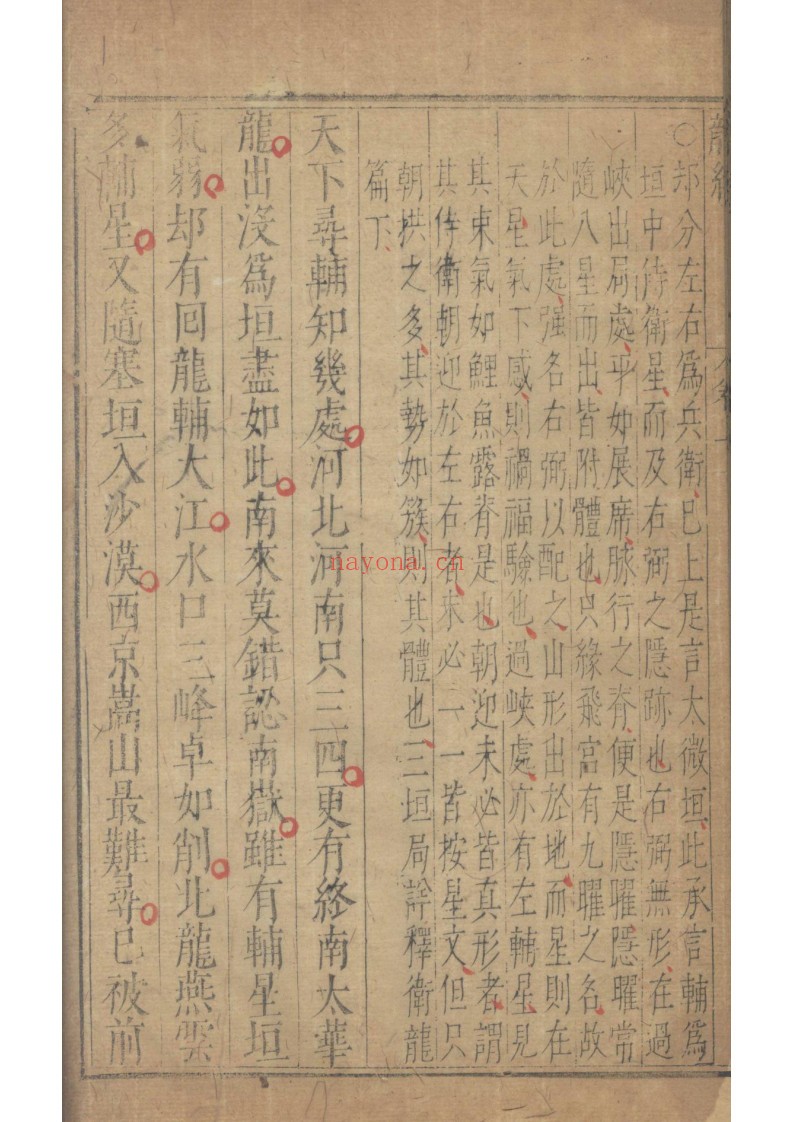 龍經
卷一
○却分左右爲兵衛、已上是言太微垣、此承言輔爲
垣中侍衛星、而及右弼之隱跡也、右弼無形、在過
峽出局處、平如展席、脉行之脊、便是隱曜、隱曜常
隨八星而出、皆附體也、只緣飛宮有九曜之名、故
於此處、强名右弼以配之、山形出於地、而星則在
天、星氣下感、則禍福驗也、過峽處、亦有左輔星、見
其束氣如鯉魚露脊是也、朝迎未必皆真形者、謂
其侍衛朝迎於左右者、未必一一皆按星文、但只
朝拱之多、其勢如簇、則其體也、三垣局詳釋衛龍
篇下、
天下尋輔知幾處河北河南只三四更有終南太華
龍出沒爲垣盡如此南來莫錯認南嶽雖有輔星垣
氣弱却有回龍輔大江水口三峰卓如削北龍燕雲
多輔星又隨塞垣入沙漠西京嵩山最難尋已被前
nayona.cn